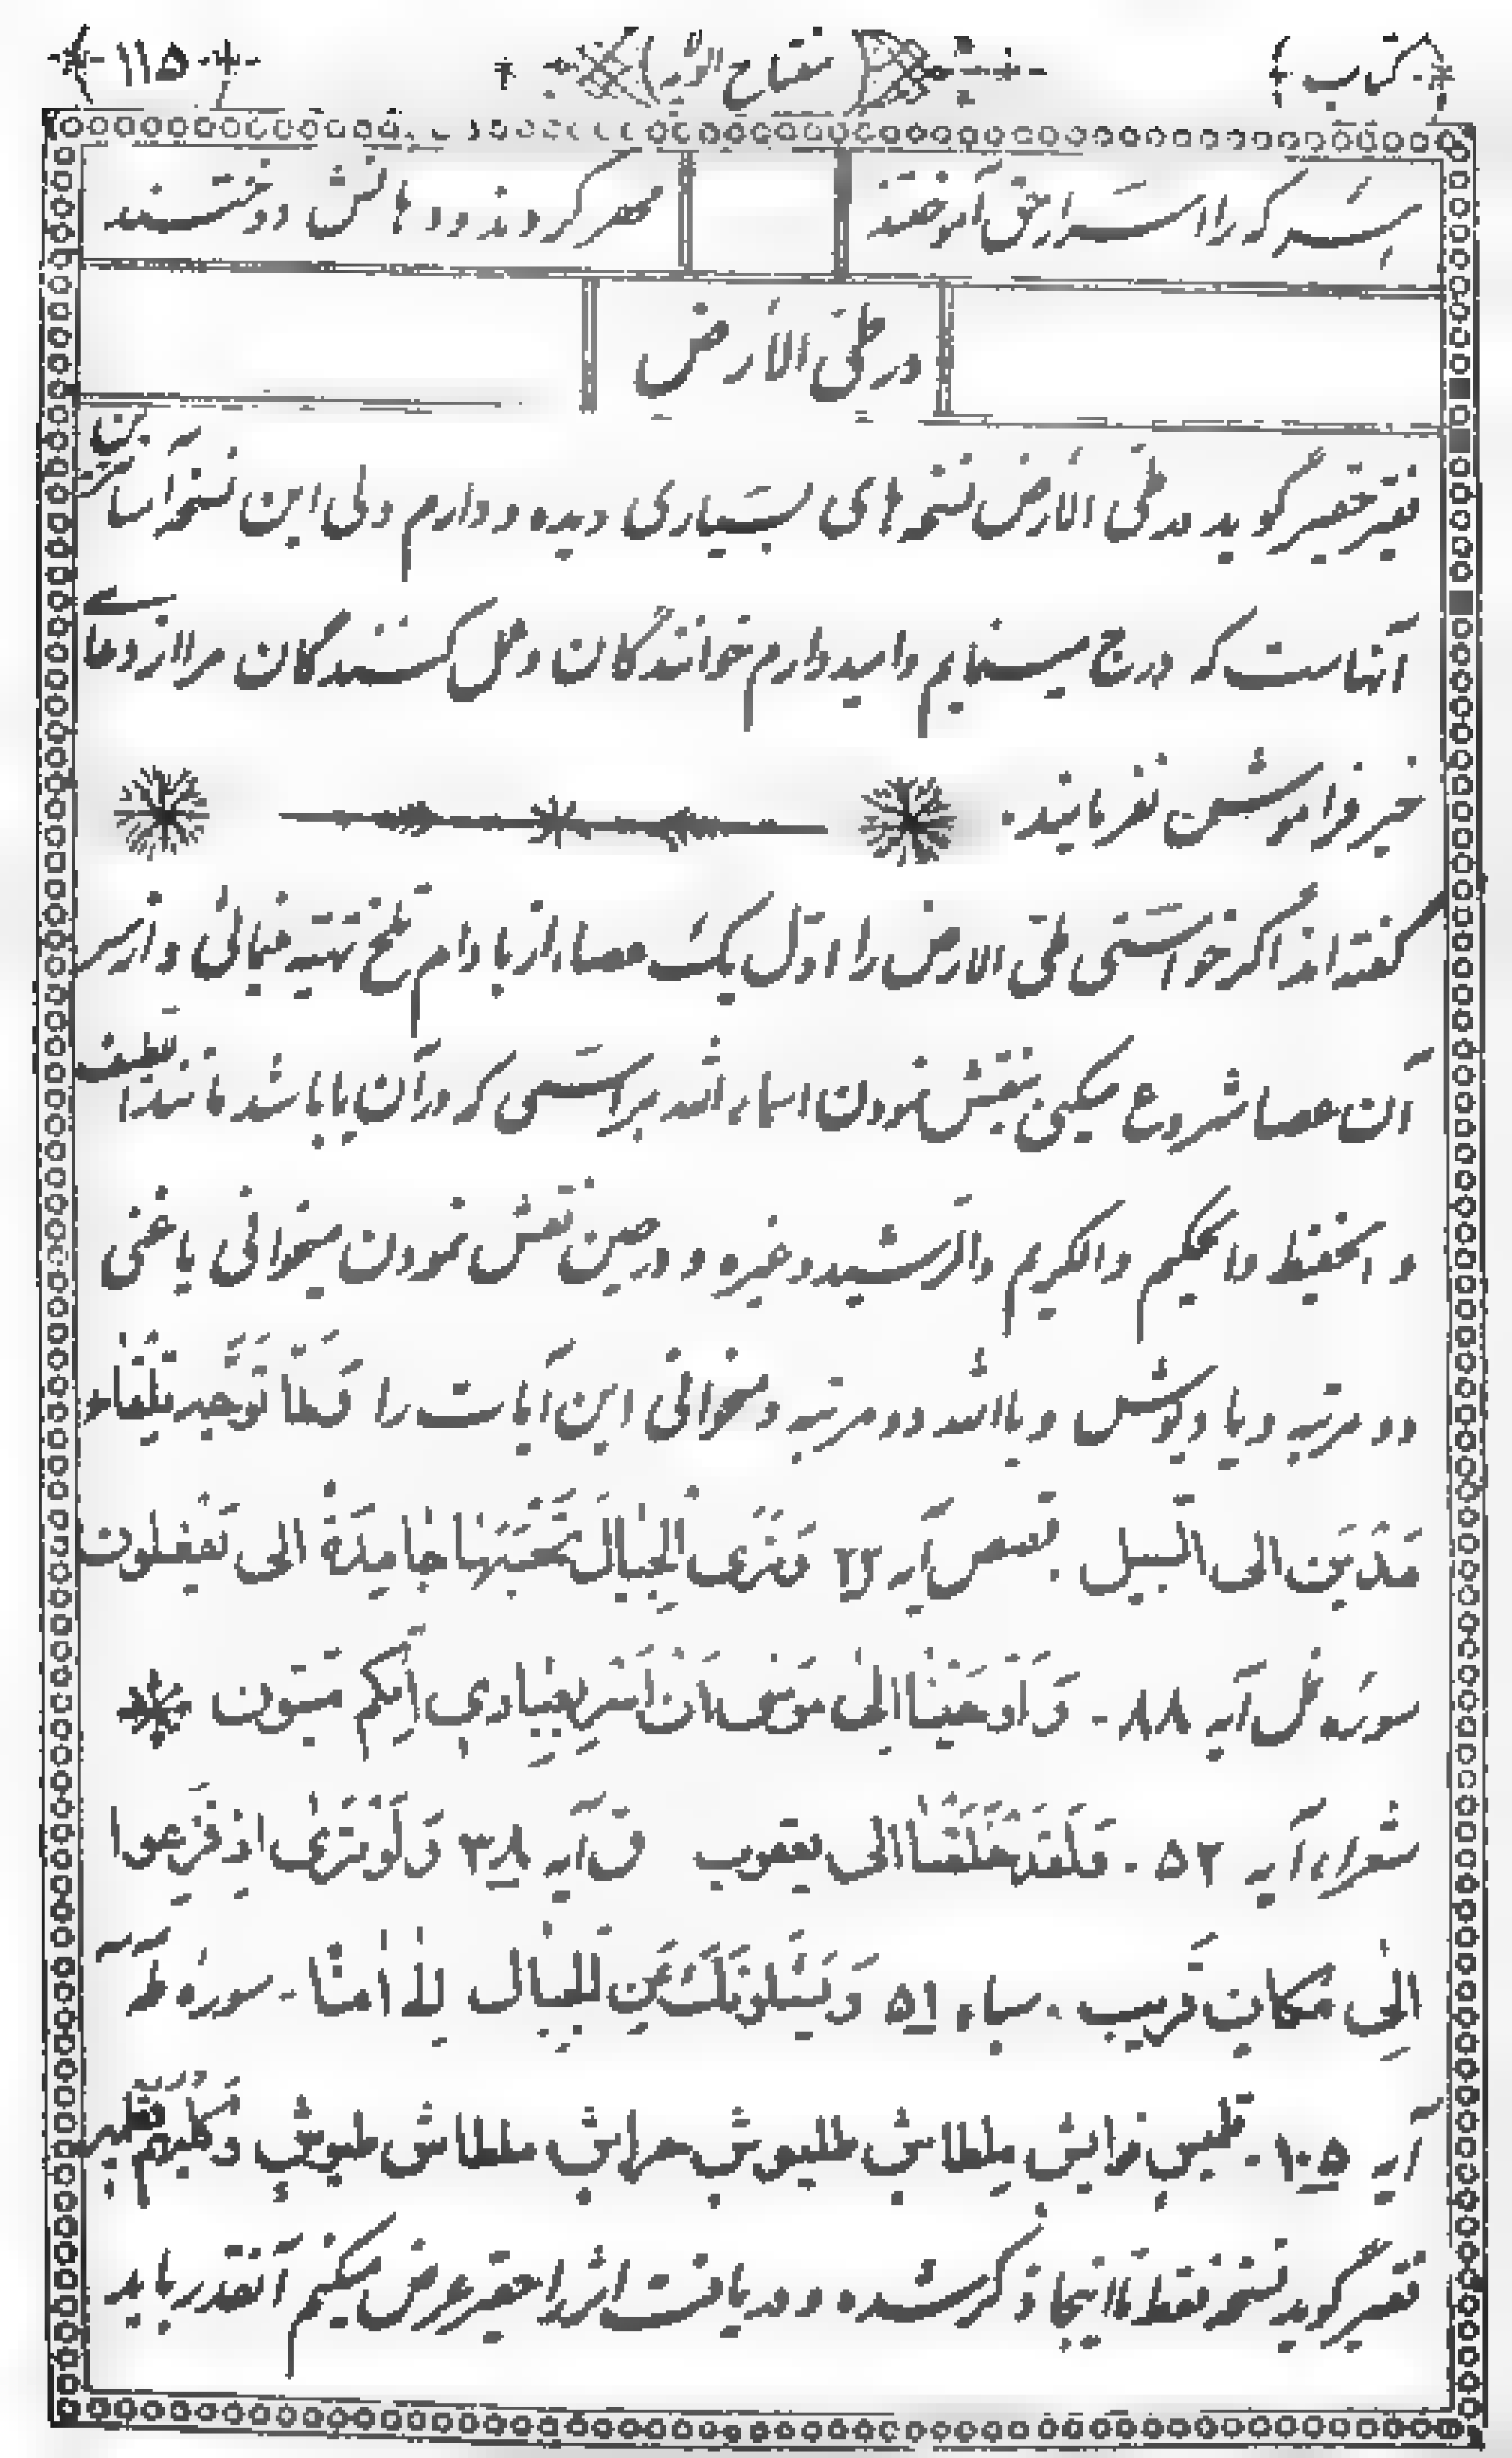 کتاب مفتاح ۱۱۵
هر که را اسرار حق آموختند مهر کردند و دهانش دوختند
در طیّ الأرض
فقیر حقیر گوید در طیّ الأرض نسخه های بسیاری دیده و دارم ولی این نسخه آسانترین
آنهاست که درج مینمایم و امیدوارم خوانندگان و عمل کنندگان مرا از دعای
خیر فراموش نفرمایند.
گفته اند اگر خواستی طیّ الارض را اوّل یک عصا، از بادام تلخ تهیّه مینمائی و از سر
آن عصا شروع میکنی بنقش نمودن اسماء الله هر اسمی که در آن یا باشد مانند اللّطیف
و الحفیظ والحکیم والکریم والرشید و غیره و در حین نقش نمودن میخوانی یا غنی
دو مرتبه و یا و یا الله دو مرتبه و میخوانی این آیات را وَلَمّا تَوَجَّهَ تِلْقاءَ
مَدْیَنَ الی السّبیل. قصص آیه ۲۲ وَتَرَی الْجِبالَ تَحْسَبُها جامِدَةً الی تَفْعَلون
سوره نمل آیه ۸۸ - وَ اَوْحَیْنا اِلی مُوسی اَنْ اَسْرِ بِعِبادی اِنّکم متّبعون
شعراء آیه ۵۲ . وَلَقَدْ خَلَقْنَا الی لغوب ق آیه ۳۸ وَلَوْ تَرَی اِذ فَزِعوا
الی مَکان قَریب . سباء ۵۱ وَ یَسْئَلونَکَ عَنِ الْجِبال اِلی اَمْتاً - سورهٔ طه
آیه ۱۰۵ -
فقیر گوید نسخه فقط تا اینجا ذکر شده و دریافت اثر را حقیر عرض میکنم آنقدر باید